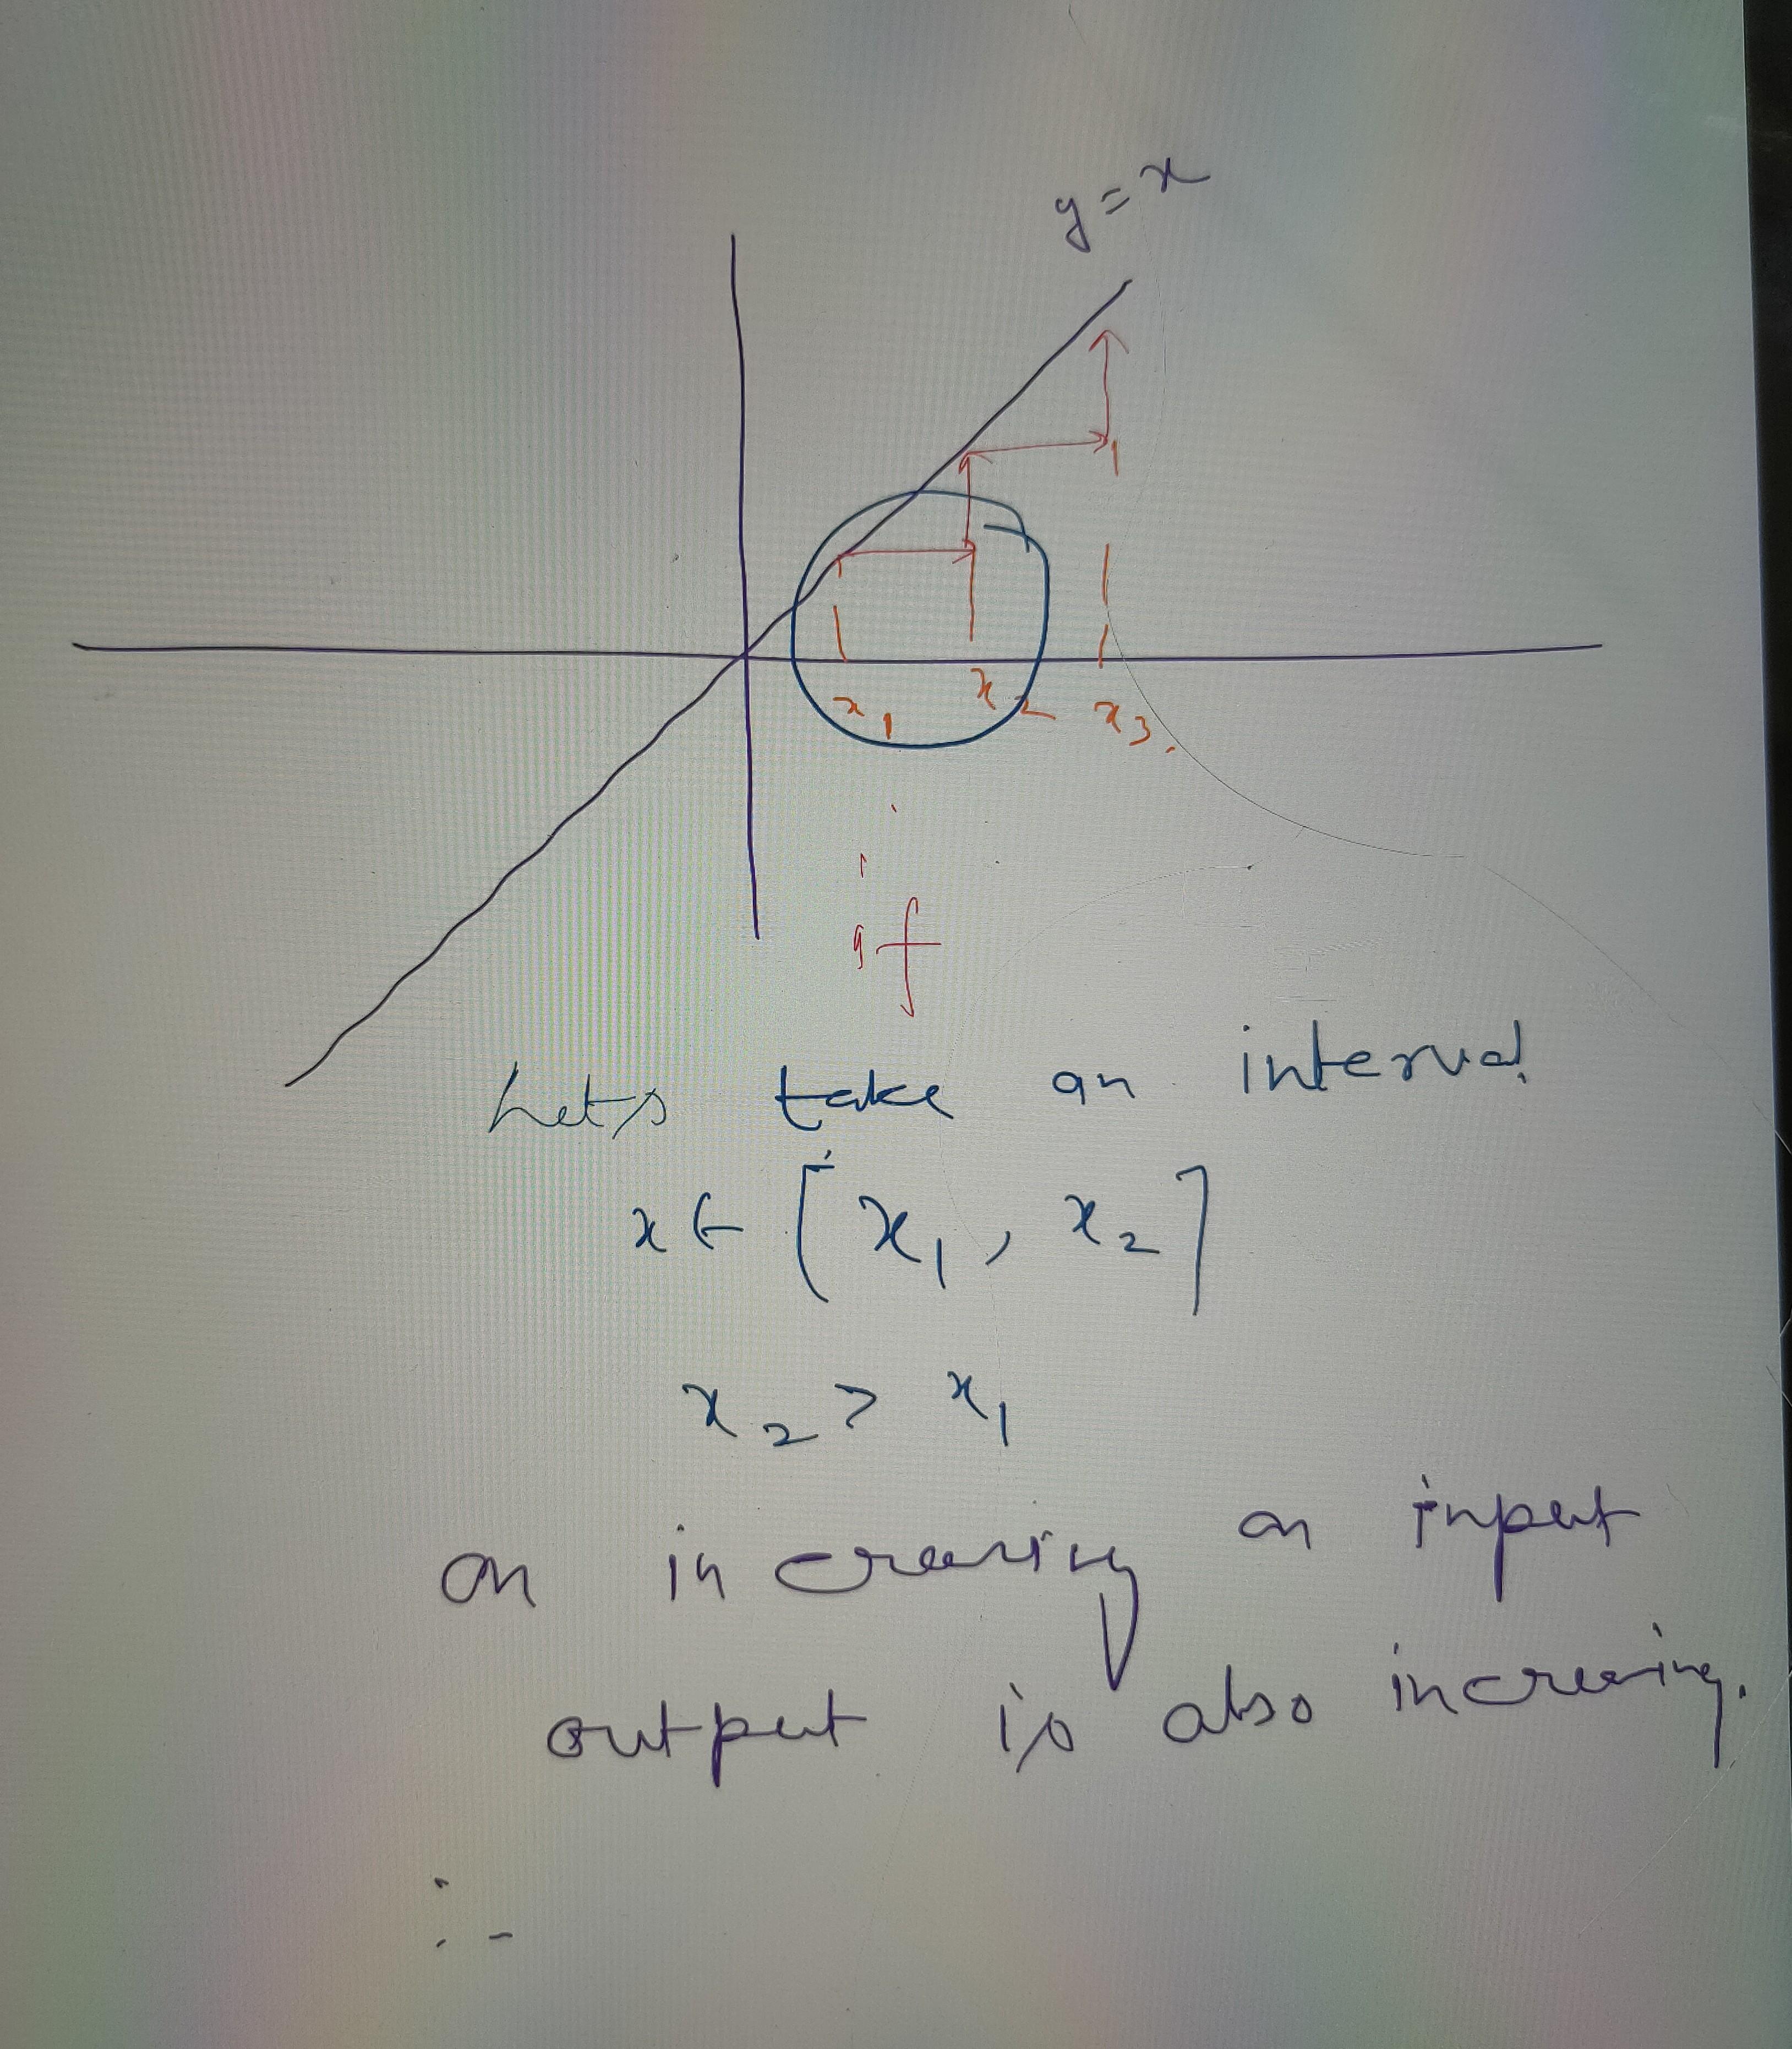 y = x
x₁ x₂ x₃.
if
Let's take an interval
x ∈ [x₁, x₂]
x₂ > x₁
on increasing an input
output is also increasing.